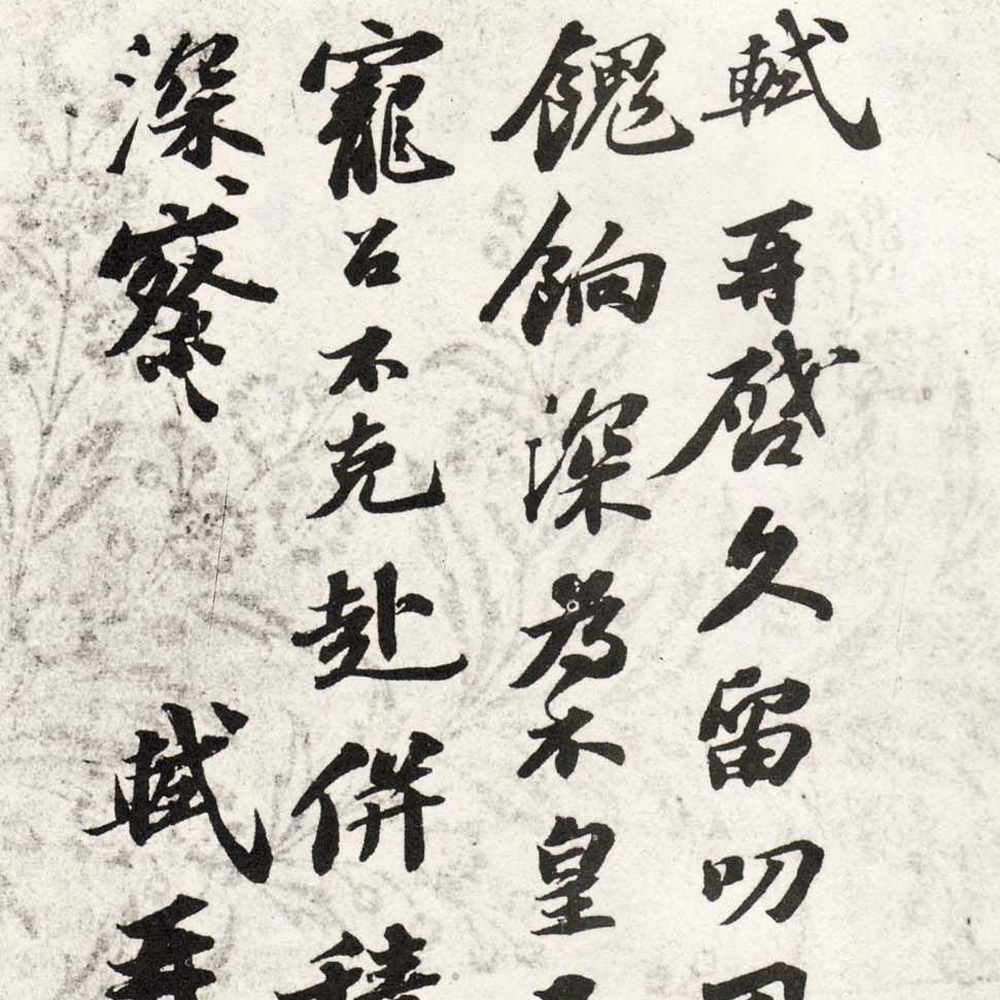 軾再啓久留叨
餽餉深為不皇
寵召不克赴併積
深察 軾再